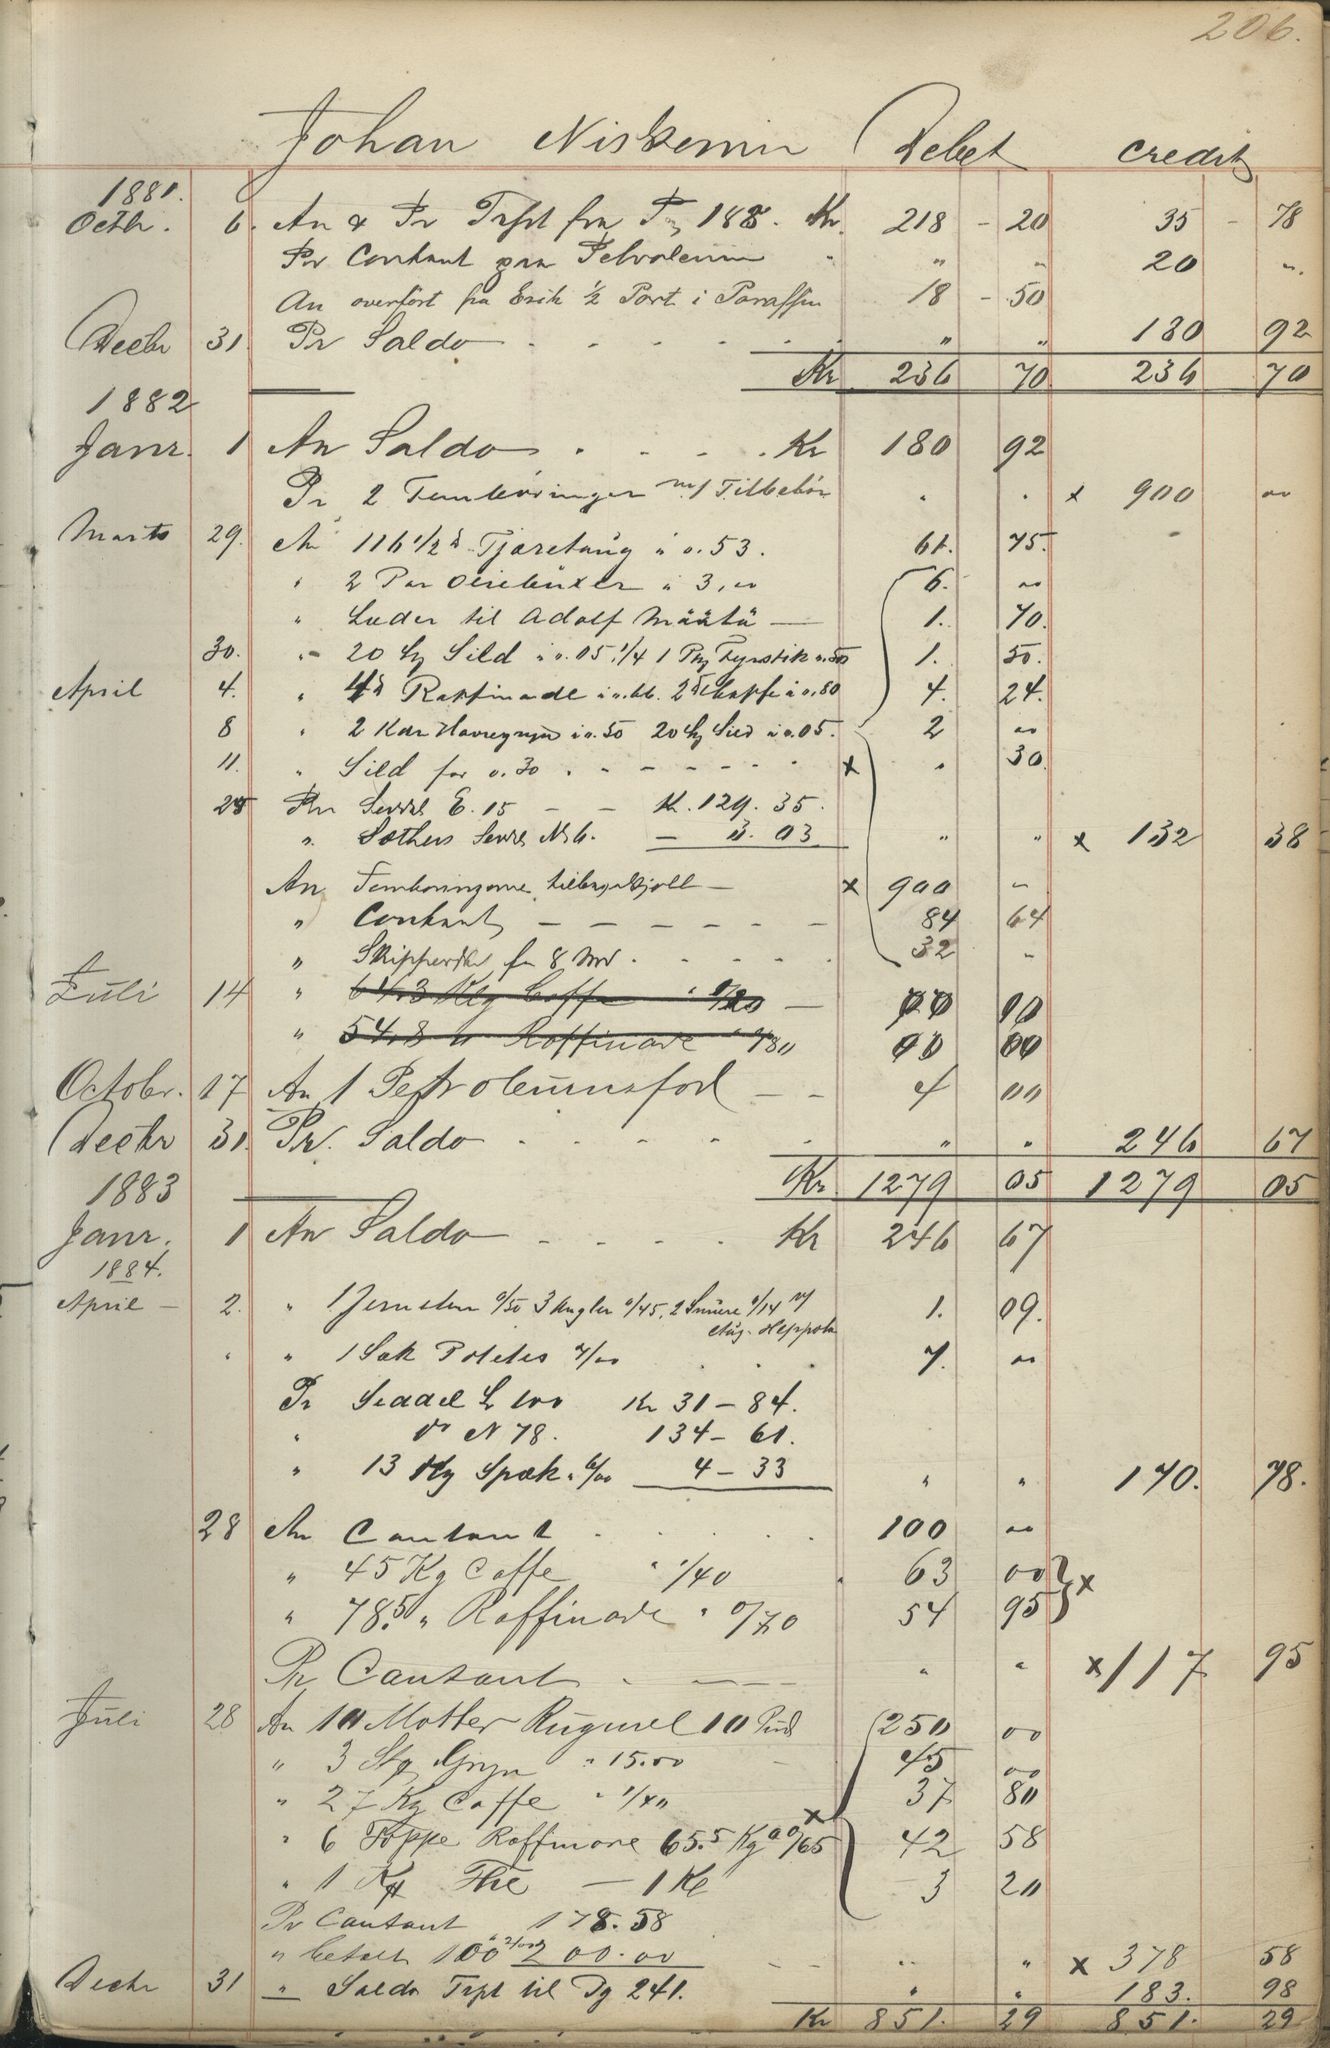 206.
Johan Niskenin Debet credit
1881.
Octbr. 6. An & Pr Trfrt fra P. 188 . Kr. 218 - 20 35 - 78
Pr Contant paa Petroleum " " " 20 "
An overført fra Erik 1/2 Part i Paraffin 18 - 50
Decbr 31. Pr Saldo . . . . . " " 180 92
Kr 236 70 236 70
1882
Janr. 1 An Saldo . . . . Kr 180 92
Pr 2 Femböringer m/ Tilbehör . . x 900 "
Marts 29. An 116 1/2 ℔ Tjæretaug à 0.53. 61. 75.
" 2 Par Oliebuxer à 3,00 6. "
" Læder til Adolf Määtä — 1. 70.
30. " 20 Sild à 0.05, 1/4 1 Pk Fyrstik 0.50 1. 50.
April 4. " 4 ℔ Raffinade à 0.66. 2 ℔ Kaffe à 0.80 4. 24.
8 " 2 Kdr Havregryn à 0.50 20 Sild à 0.05. 2 "
11. " Sild for 0.30 . - - - - - - x " 30
25 Pr Seddel E. 15 — — K. 129. 35.
" Sæthers Seddel No 6. — 3. 03 " " x 132 38
An Femböringerne tilbageskjött — x 900 "
" Contant — — — — — — 84 64
" Skipper for 8 Md . . . . . 32 "
Juli 14 " Kg Caffe —
" 54.8 " Raffinade 0/80
Octobr. 17 An 1 Petroleumsfad — — 4 00
Decbr 31. Pr. Saldo . . . . . " " 246 67
1883 Kr 1279 05 1279 05
Janr. 1 An Saldo . . . . Kr 246 67
1884.
April — 2. " 1 Jernsten 0/50 3 Angler 0/45, 2 Snüre 0/14 v/ 1. 09.
Aug. Heppola
" " 1 Sæk Potetes 7/00 . . 7. "
Pr Seddel L 100 Kr 31 — 84.
" do N 78. 134 — 61.
" 13 Kg Spæk 4 — 33 " " 170. 78.
28 An Contant . . . . . 100 "
" 45 Kg Caffe " 1/40 . 63 00 } x
" 78.5 " Raffinade " 0/70 54 95
Pr Contant . — — — " " x 117 95
Juli 28 An 10 Matter Rugmel 10 Pud 250 00
" 3 Stg Gryn " 15.00 — 45 00
" 27 Kg Caffe " 1/40 x 37 80
" 6 Toppe Raffinade 65.5 Kg a 0/65 42 58
" 1 Kg The — 1 Kg 3 20
Pr Contant 178.58
" betalt 100 2/00 200.00 — — " " x 378 58
Decbr 31 " Saldo Trfrt til Pg 241. " " 183. 98
Kr 851. 29 851. 29